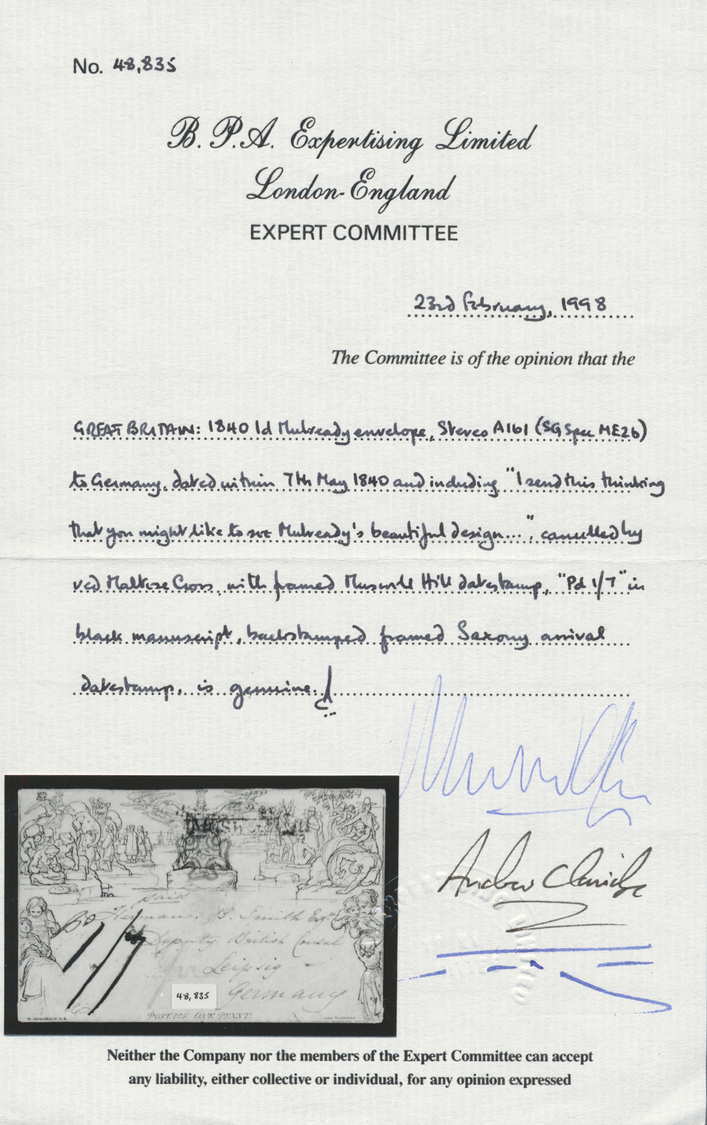 No. 48,835
B. P.A. Expertising Limited
London-England
EXPERT COMMITTEE
23rd February, 1998
The Committee is of the opinion that the
GREAT BRITAIN: 1840 1d Mulready envelope, Stereo A161 (SG Spec ME2b)
to Germany, dated within 7th May 1840 and including "I send this thinking
that you might like to see Mulready's beautiful design...", cancelled by
red Maltese Cross, with framed Muswell Hill datestamp, "Pd 1/7" in
black manuscript, backstamped framed Saxony arrival
datestamp, is genuine.
Andrew Claridge
paid
Hermann H. Smith Esqr
Deputy British Consul
Leipsig
Germany
48,835
POSTAGE ONE PENNY
Neither the Company nor the members of the Expert Committee can accept
any liability, either collective or individual, for any opinion expressed